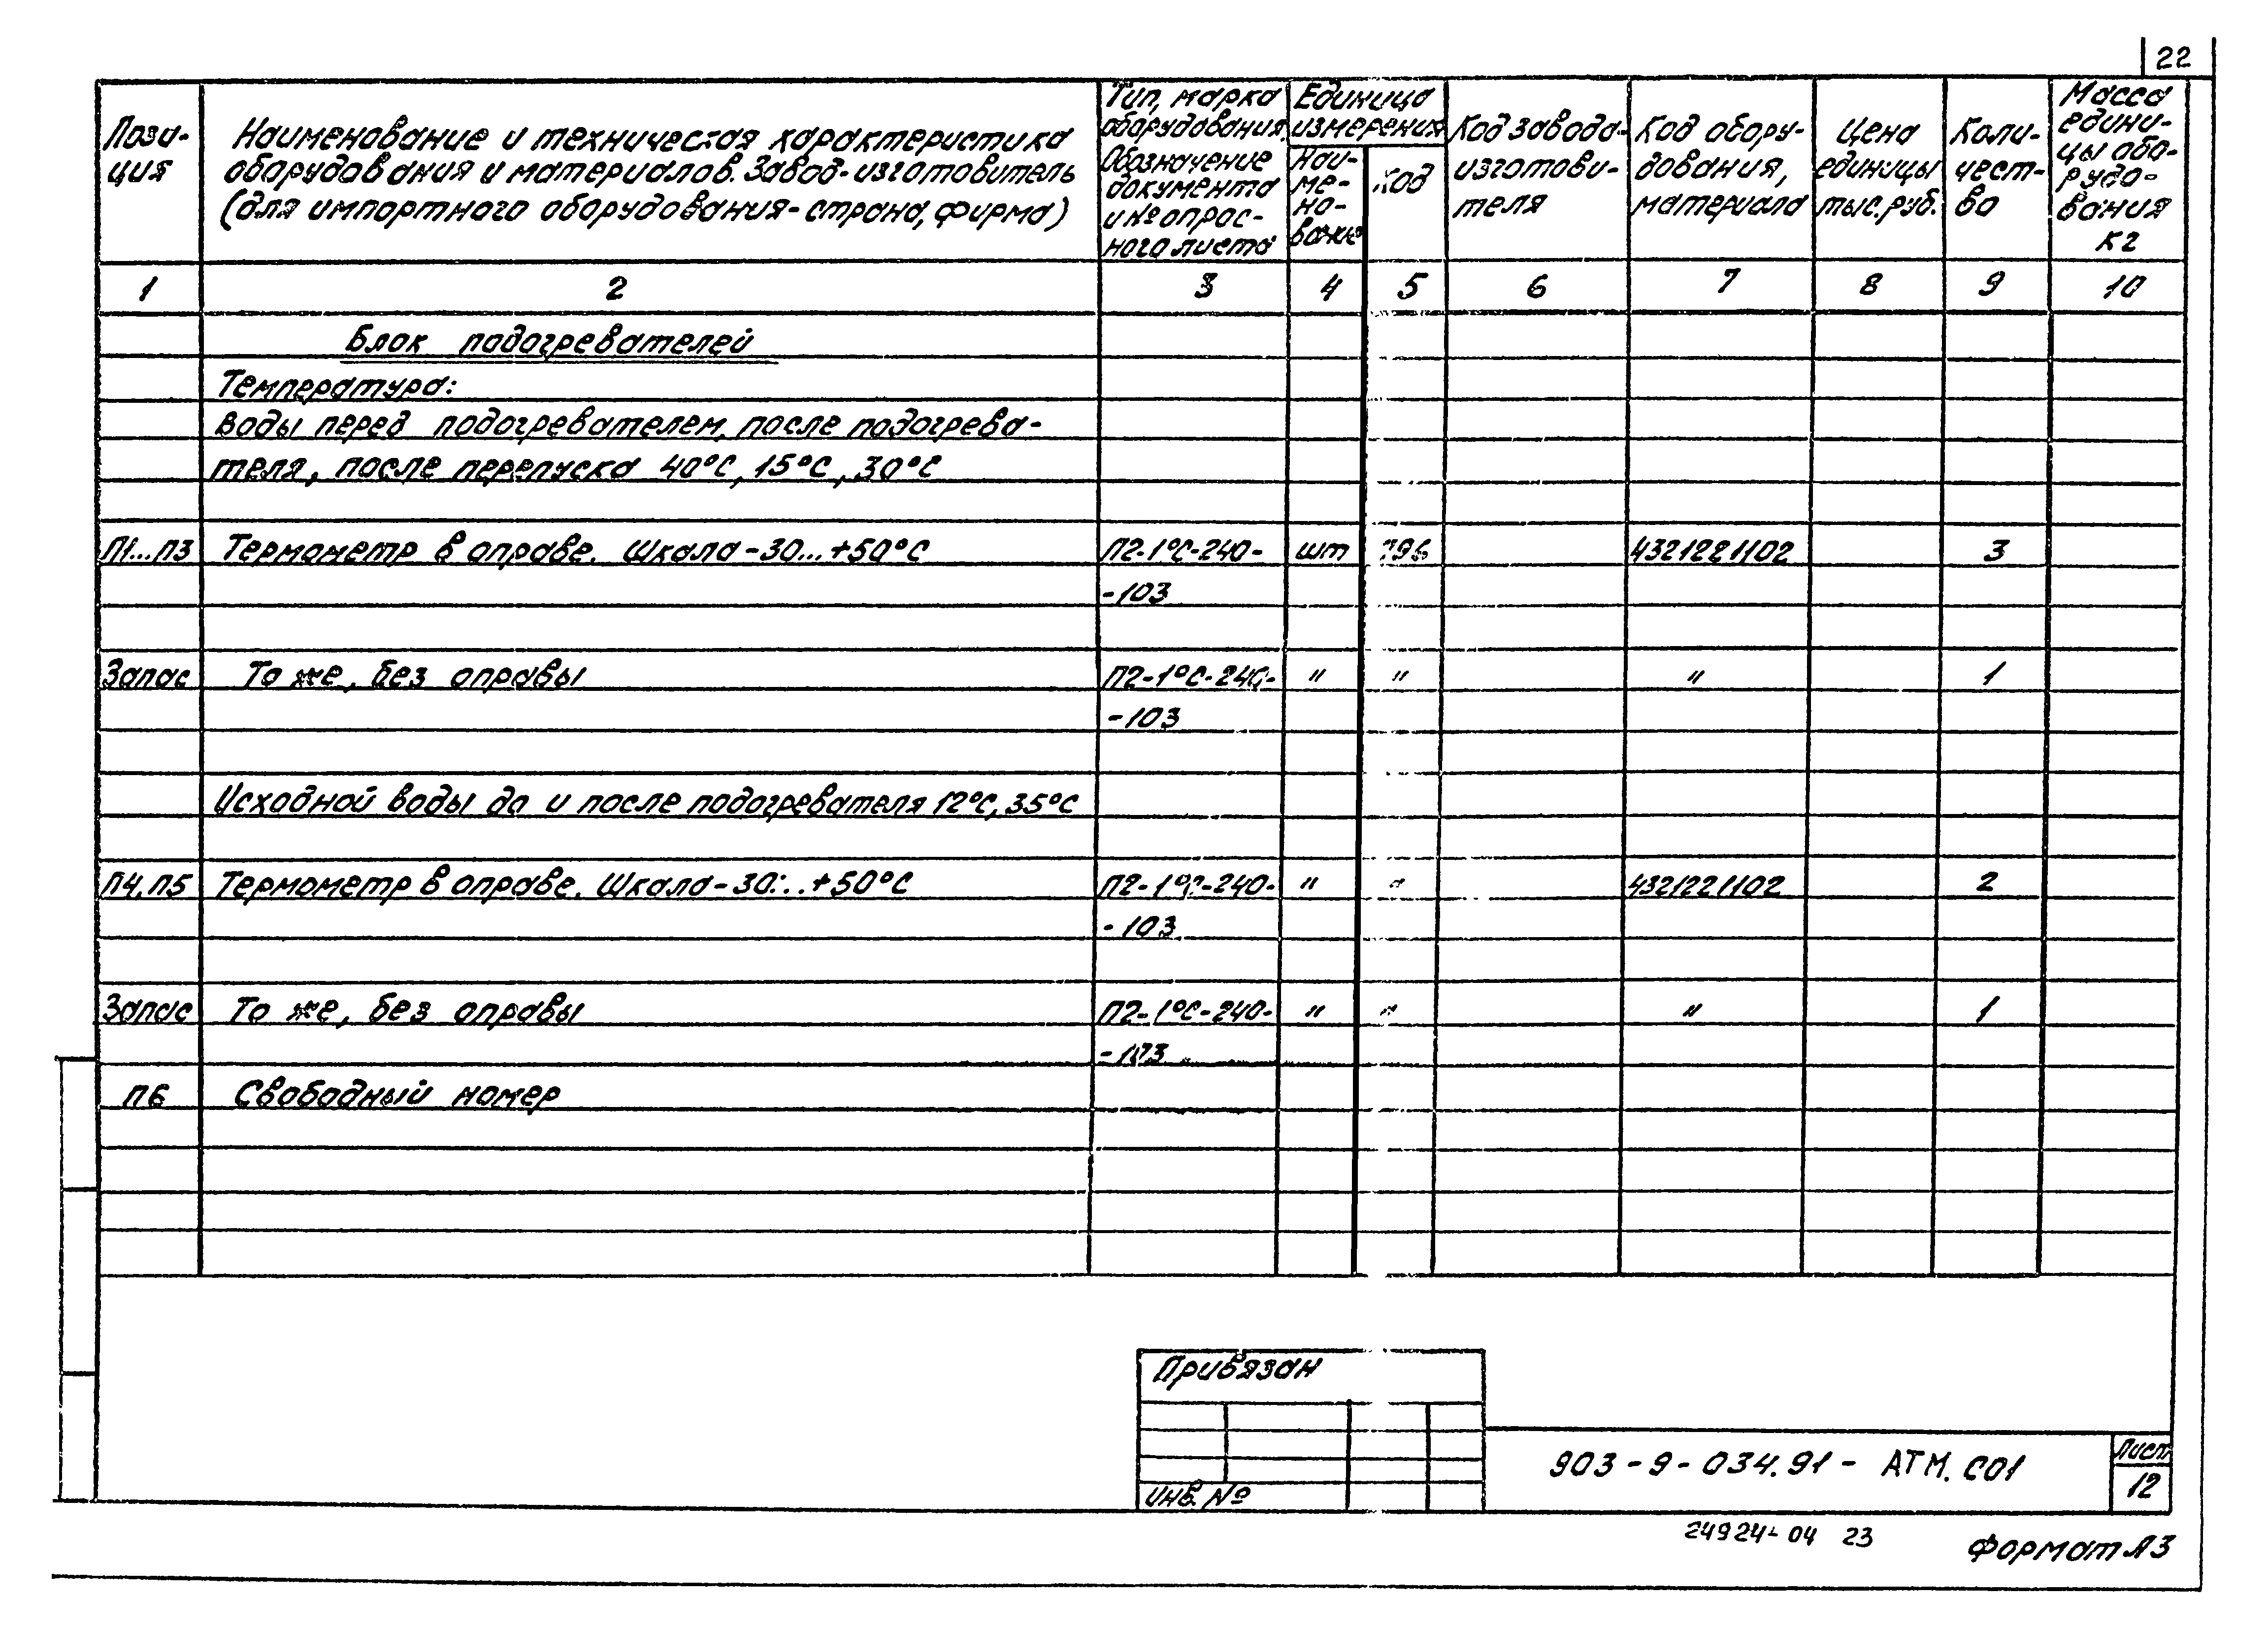 22
Пози-
ция
Наименование и техническая характеристика
оборудования и материалов. Завод-изготовитель
(для импортного оборудования-страна, фирма)
Тип, марка
оборудования
Обозначение
документа
и № опрос-
ного листа
Единица
измерения
Наи-
ме-
но-
вание
Код
Код завода-
изготови-
теля
Код обору-
дования,
материала
Цена
единицы
тыс.руб.
Коли-
чест-
во
Масса
едини-
цы обо-
рудо-
вания
кг
1 2 3 4 5 6 7 8 9 10
Блок подогревателей
Температура:
воды перед подогревателем, после подогрева-
теля, после перепуска 40°С, 15°С, 30°С
П1...П3 Термометр в оправе. Шкала -30...+50°С П2-1°С-240- шт 796 4321221102 3
-103
Запас То же, без оправы П2-1°С-240- " " " 1
-103
Исходной воды до и после подогревателя 12°С, 35°С
П4, П5 Термометр в оправе. Шкала -30...+50°С П2-1°С-240- " " 4321221102 2
-103
Запас То же, без оправы П2-1°С-240- " " " 1
-103
П6 Свободный номер
Привязан
Инв. №
903-9-034.91- АТМ. С01
Лист
12
24924-04 23
Формат А3